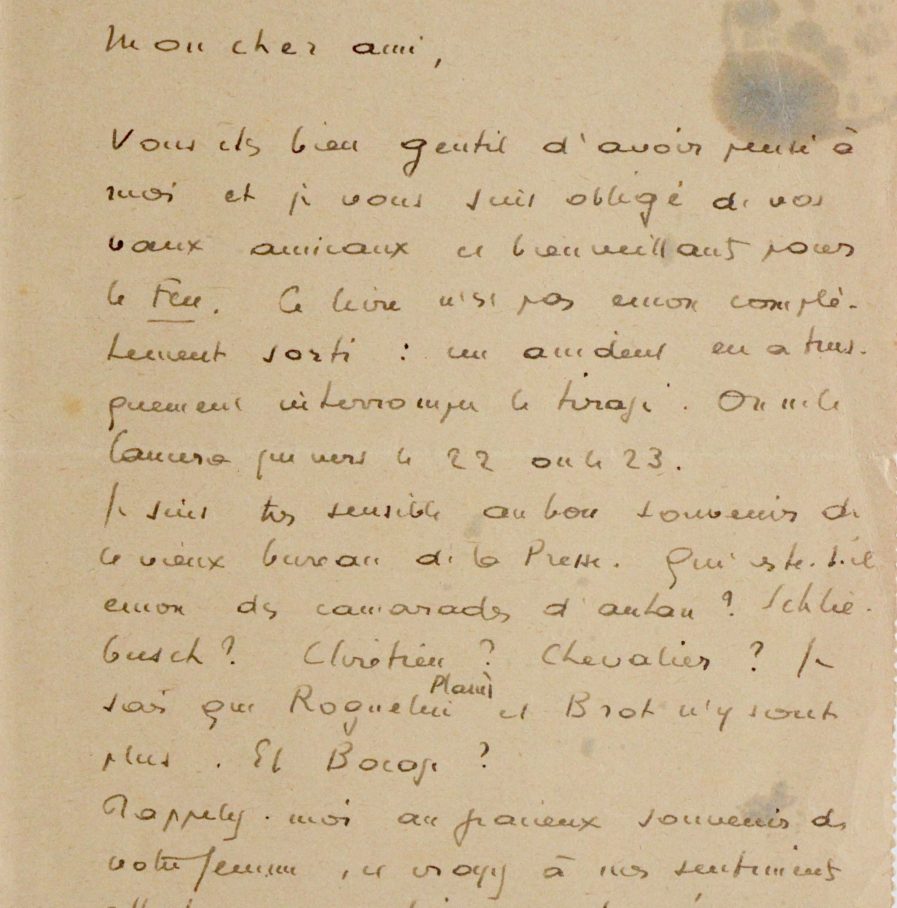 Mon cher ami,
Vous êtes bien gentil d'avoir pensé à
moi et je vous suis obligé de vos
vœux amicaux et bienveillants pour
le Feu. Ce livre n'est pas encore complè-
tement sorti : un accident en a brus-
quement interrompu le tirage. On ne le
lancera que vers le 22 ou le 23.
Je suis très sensible au bon souvenir de
ce vieux bureau de la Presse. Qui reste-t-il
encore des camarades d'antan ? Schlie-
busch ? Chrétien ? Chevalier ? Je
sais que Roguelin Planès et Brot n'y sont
plus. Et Bocage ?
Rappelez-moi au gracieux souvenir de
votre femme, et croyez à mes sentiments